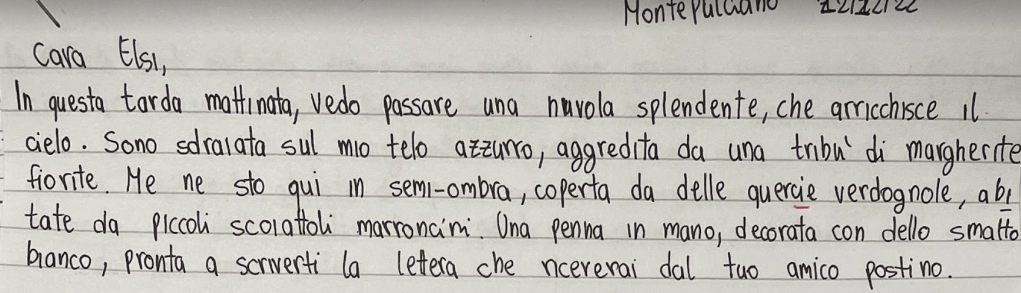 Montepulciano 22/12/22
Cara Elsi,
In questa tarda mattinata, vedo passare una nuvola splendente, che arricchisce il
cielo. Sono sdraiata sul mio telo azzurro, aggredita da una tribu' di margherite
fiorite. Me ne sto qui in semi-ombra, coperta da delle quercie verdognole, abi
tate da piccoli scoiattoli marroncini. Una penna in mano, decorata con dello smalto
bianco, pronta a scriverti la lettera che riceverai dal tuo amico postino.